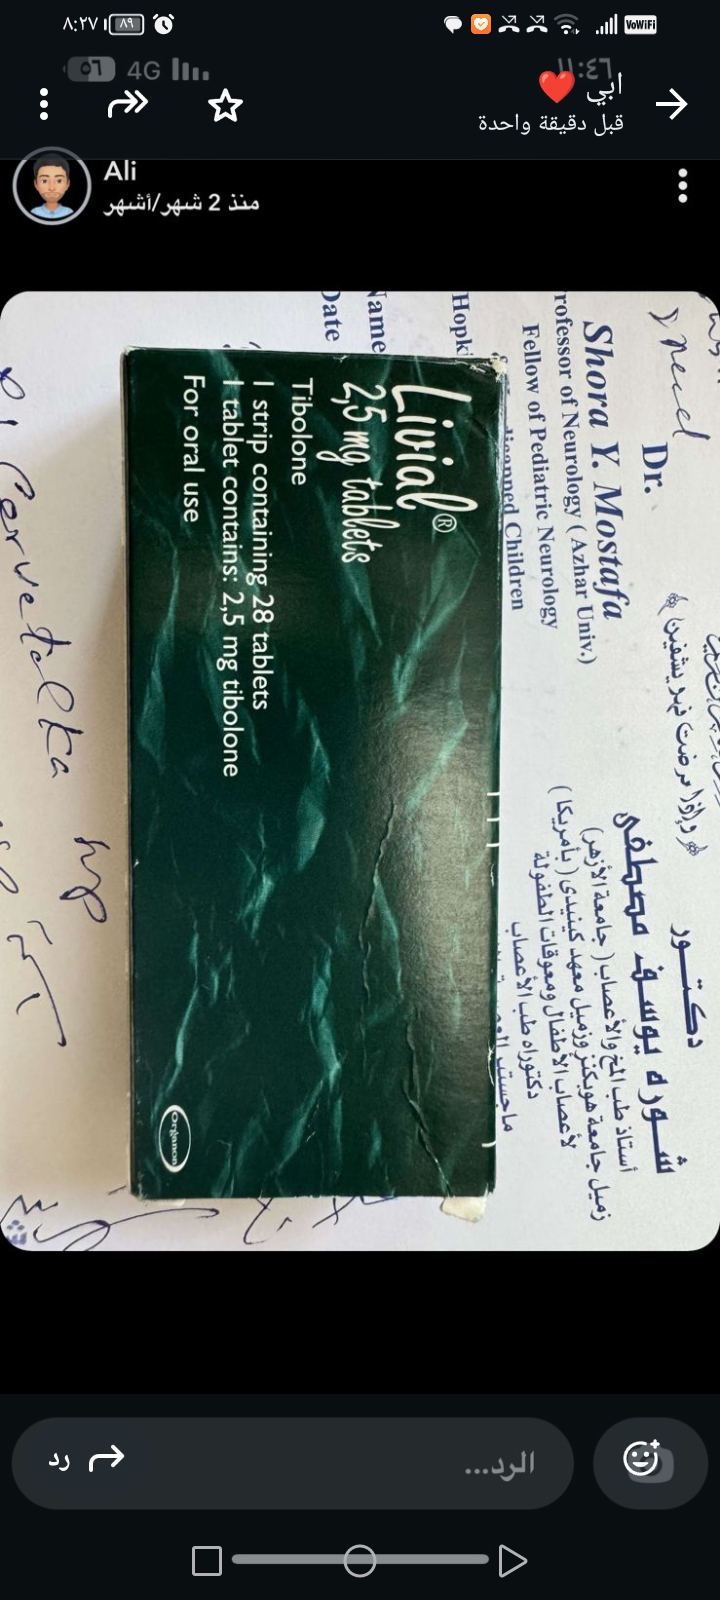 ٨:٢٧
٨٩
VoWiFi
٥٦ 4G
١١:٤٦
ابي ❤️
قبل دقيقة واحدة
Ali
منذ 2 شهر/أشهر
Dr.
Shora Y. Mostafa
rofessor of Neurology ( Azhar Univ.)
Fellow of Pediatric Neurology
Children
Hopk
Name
Date
﴿ وإذا مرضت فهو يشفين ﴾
دكتور
شوره يوسف مصطفى
أستاذ طب المخ والأعصاب ( جامعة الأزهر)
زميل جامعة هوبكنز وزميل معهد كينيدى ( بأمريكا )
لأعصاب الأطفال ومعوقات الطفولة
دكتوراه طب الأعصاب
ماجستير
Livial®
2,5 mg tablets
Tibolone
1 strip containing 28 tablets
1 tablet contains: 2,5 mg tibolone
For oral use
Organon
الرد...
رد